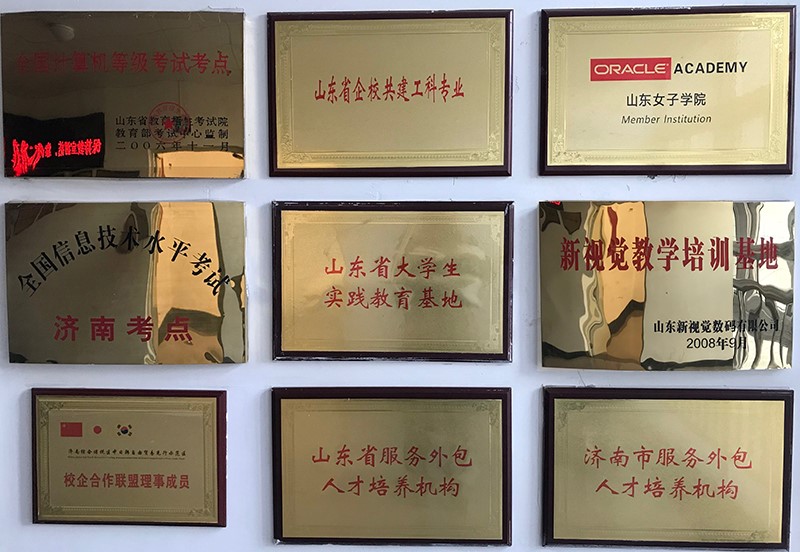 全国计算机等级考试考点
山东省教育招生考试院
教育部考试中心监制
二〇〇六年十一月
山东省企校共建工科专业
ORACLE ACADEMY
山东女子学院
Member Institution
全国信息技术水平考试
济南考点
山东省大学生
实践教育基地
新视觉教学培训基地
山东新视觉数码有限公司
2008年9月
校企合作联盟理事成员
山东省服务外包
人才培养机构
济南市服务外包
人才培养机构